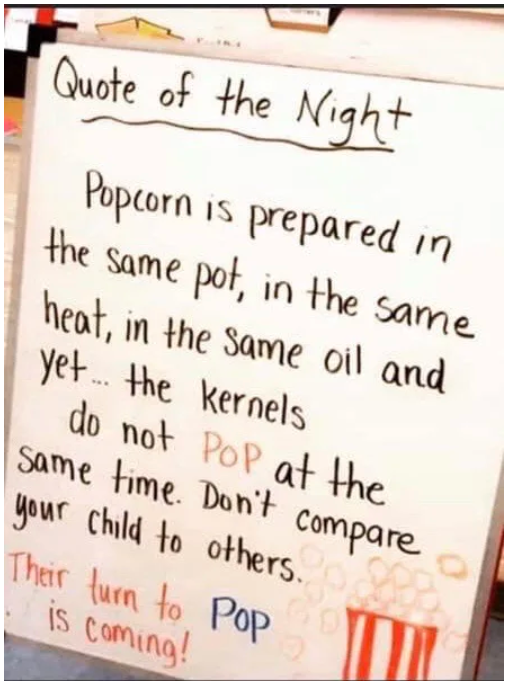 Quote of the Night
Popcorn is prepared in
the same pot, in the same
heat, in the same oil and
yet... the kernels
do not POP at the
same time. Don't compare
your child to others.
Their turn to POP
is coming!